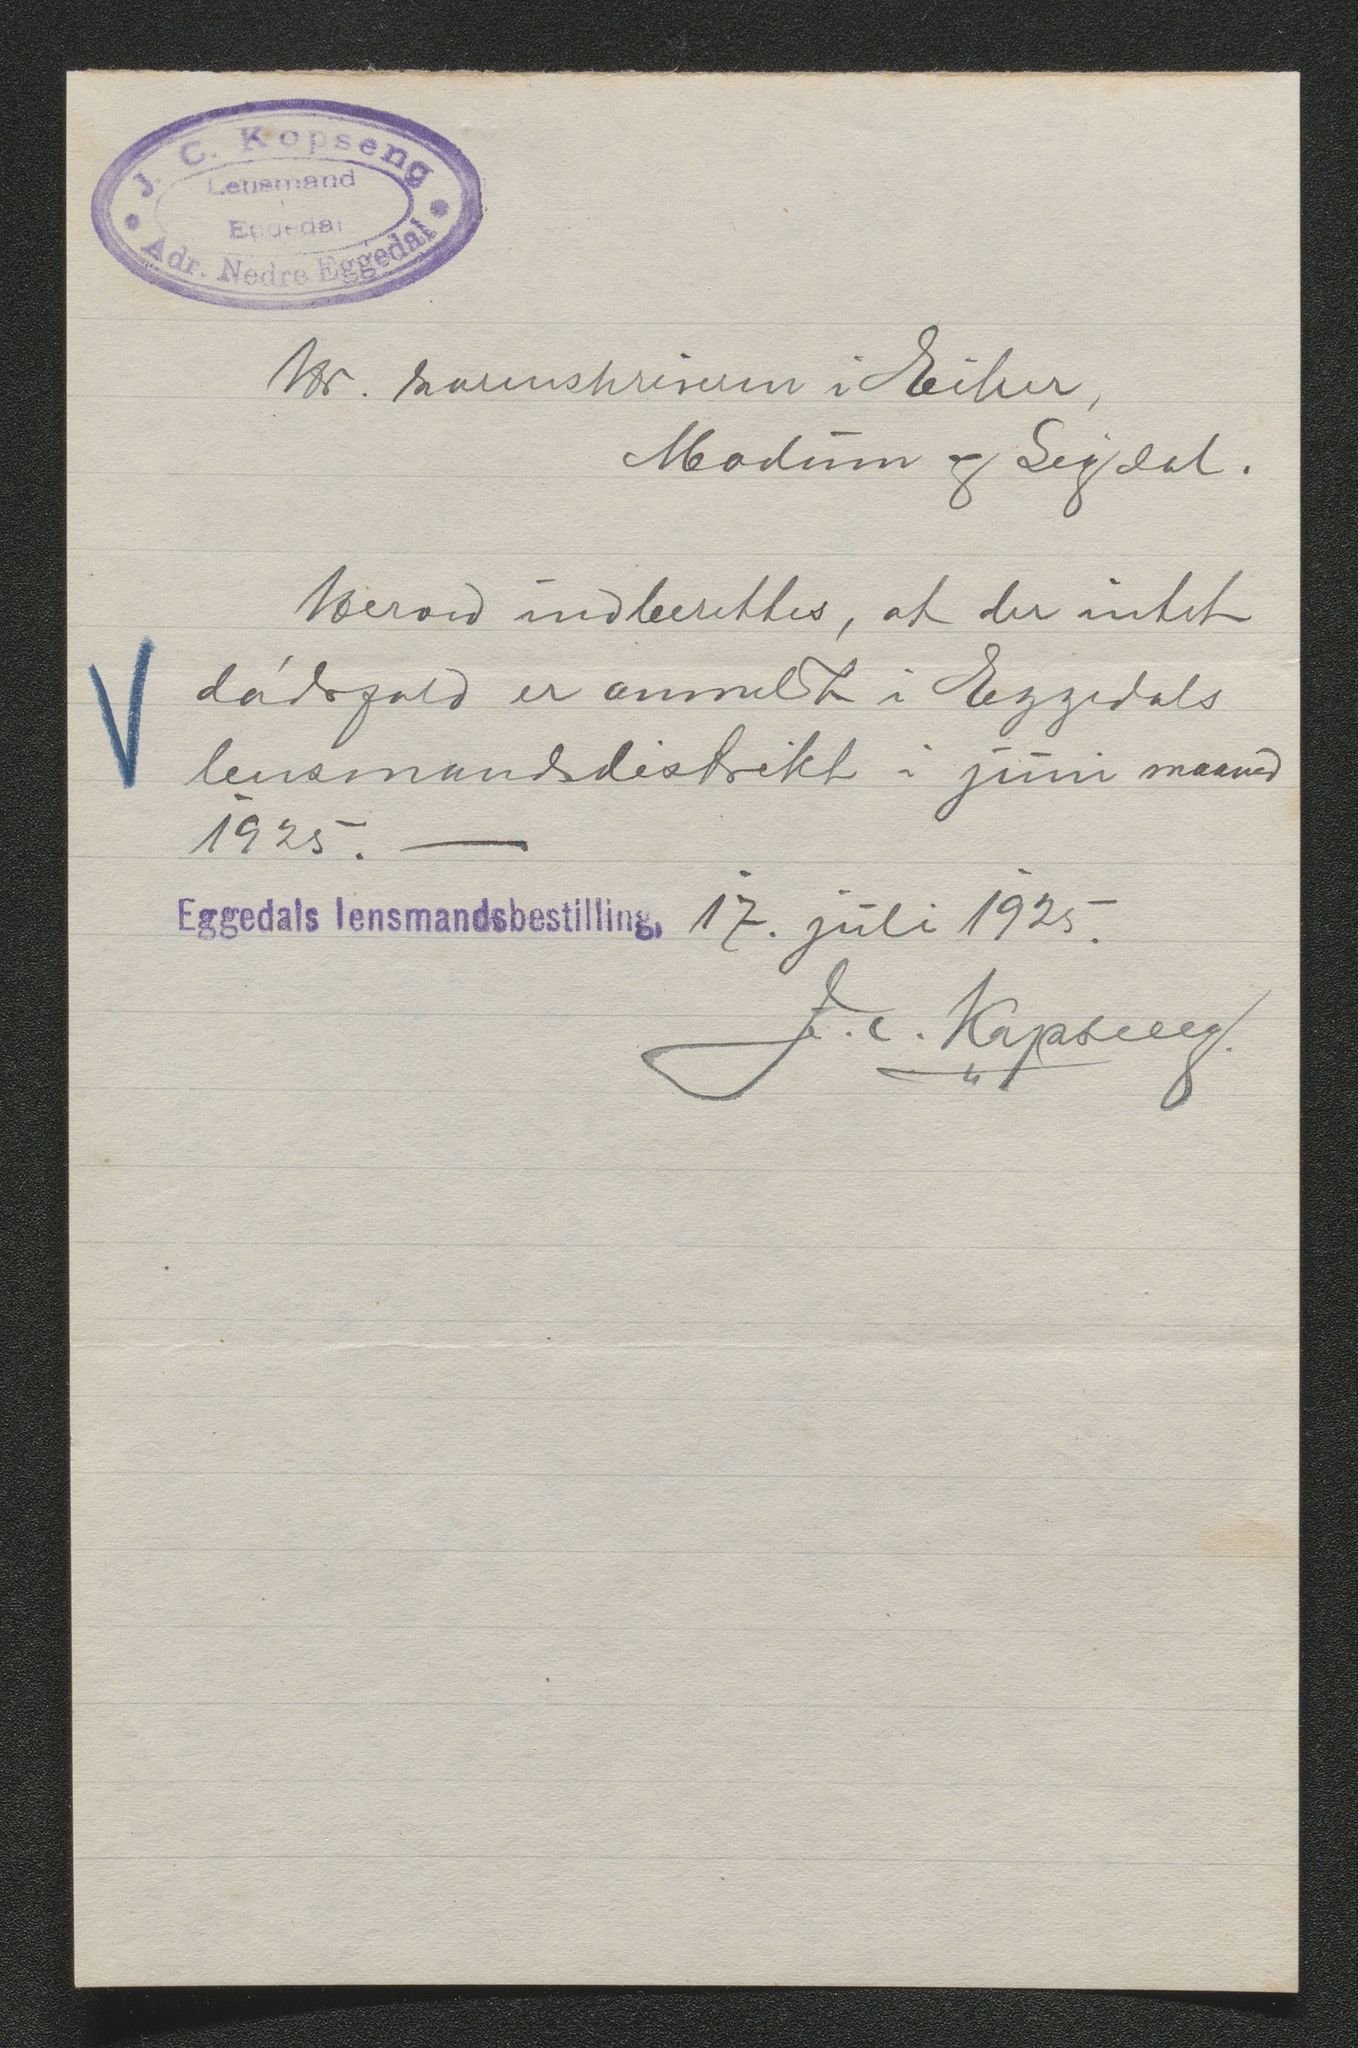 J. C. Kopseng
Lensmand
i
Eggedal
Adr. Nedre Eggedal
Hr. sorenskriveren i Eiker,
Modum og Sigdal.
Herved indberettes, at der intet
dødsfald er anmeldt i Eggedals
lensmandsdistrikt i juni maaned
1925. —
Eggedals lensmandsbestilling, 17. juli 1925.
J. C. Kopseng.